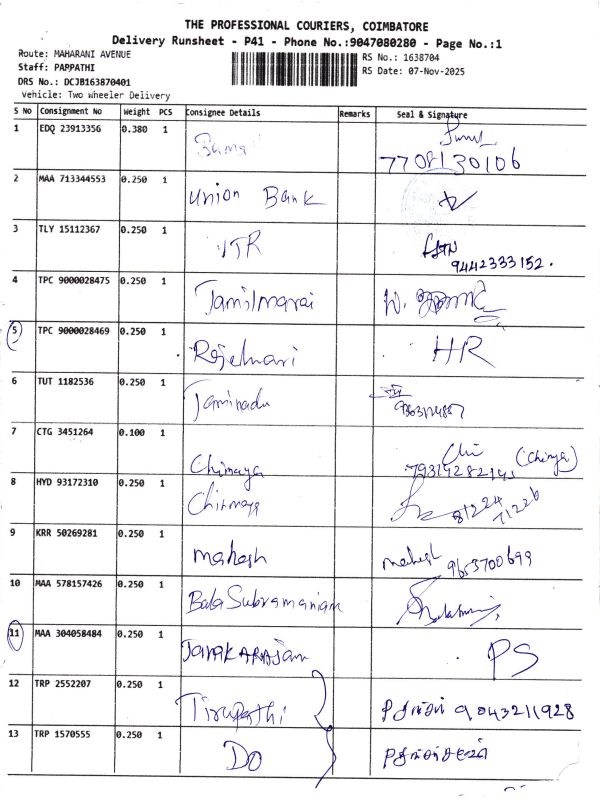 THE PROFESSIONAL COURIERS, COIMBATORE
Delivery Runsheet - P41 - Phone No.:9047080280 - Page No.:1
Route: MAHARANI AVENUE
RS No.: 1638704
Staff: PAPPATHI
RS Date: 07-Nov-2025
DRS No.: DCJB163870401
Vehicle: Two Wheeler Delivery
S No Consignment No Weight PCS Consignee Details Remarks Seal & Signature
1 EDQ 23913356 0.380 1
7708130106
2 MAA 713344553 0.250 1 Union Bank
3 TLY 15112367 0.250 1 ITR
9442333152.
4 TPC 9000028475 0.250 1 Tamilmarai
5 TPC 9000028469 0.250 1 HR
6 TUT 1182536 0.250 1 Taminadu
7 CTG 3451264 0.100 1 Chimaya
8 HYD 93172310 0.250 1 Chinmaya 81224 71226
9 KRR 50269281 0.250 1 mahesh mahesh 9653700699
10 MAA 578157426 0.250 1 Bala Subramaniam
11 MAA 304058484 0.250 1 JanakARAJan PS
12 TRP 2552207 0.250 1 Tirupathi 9043211928
13 TRP 1570555 0.250 1 Do